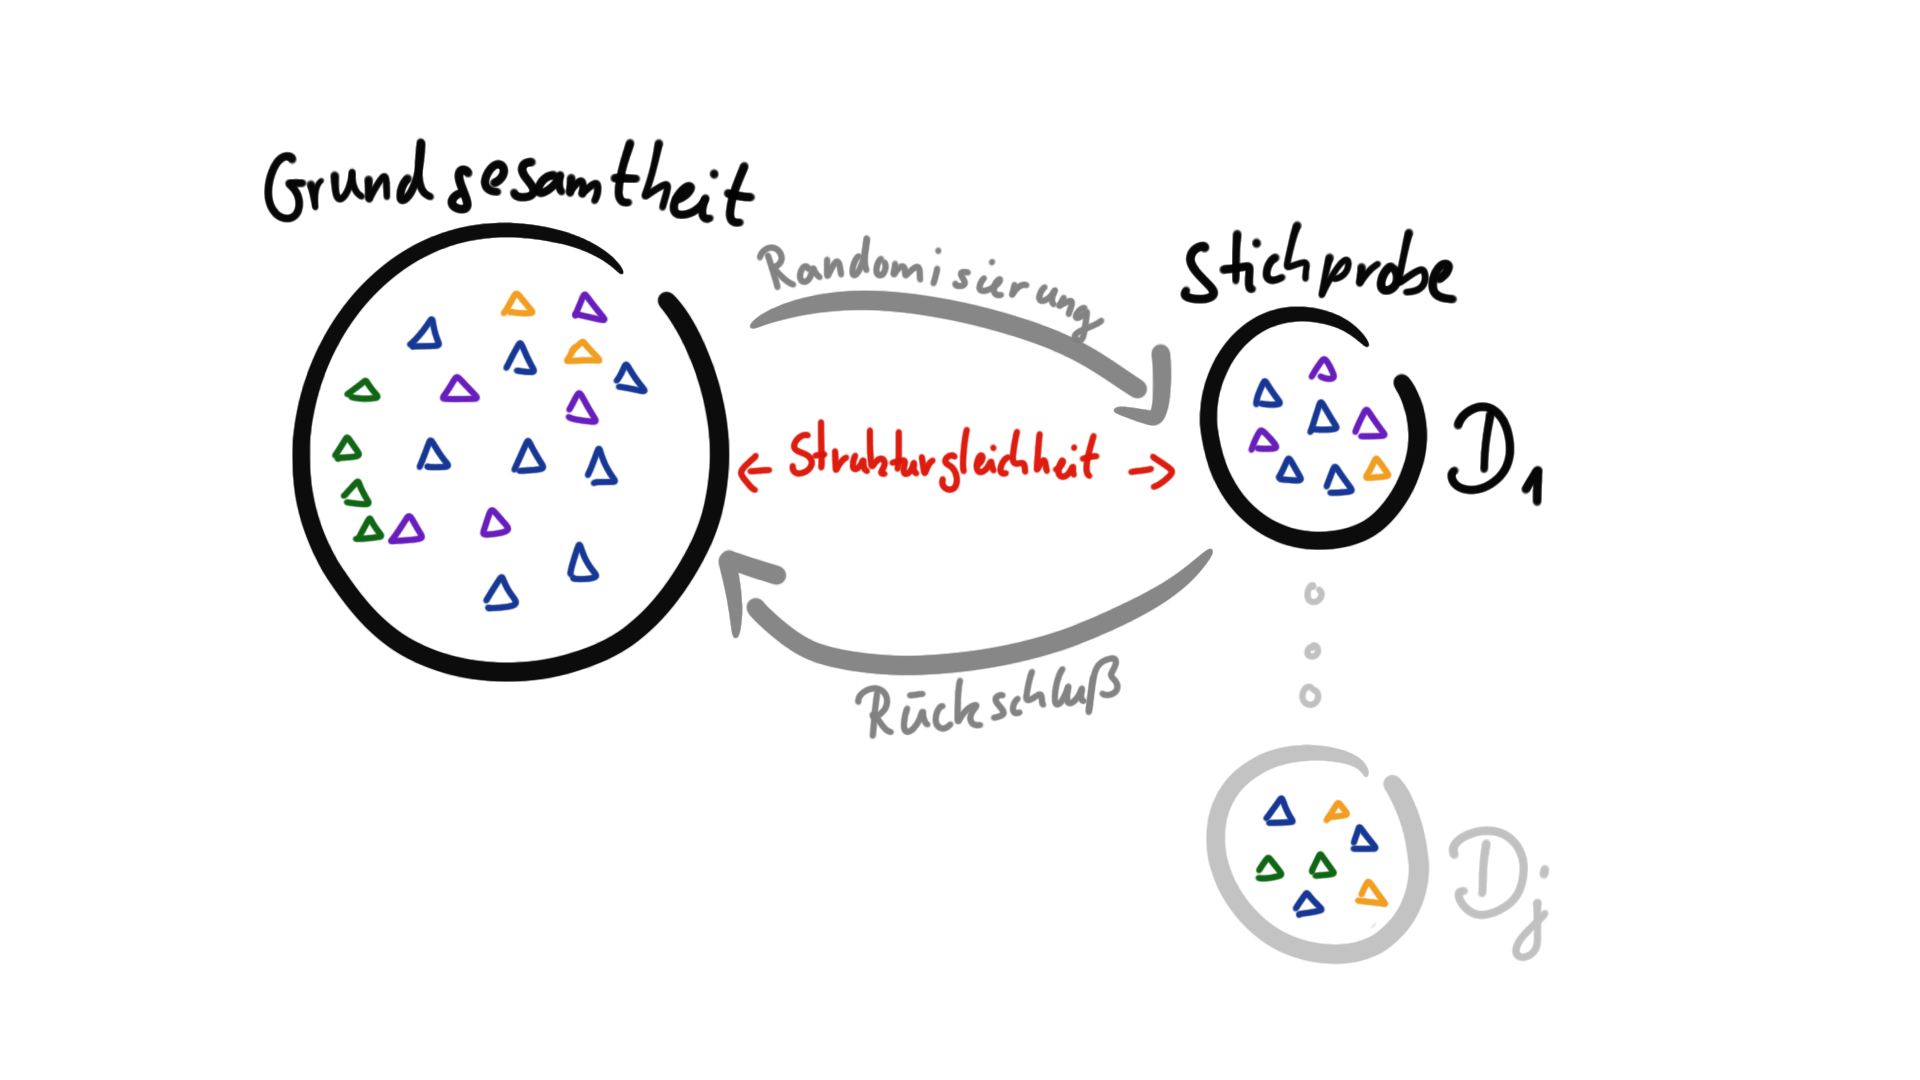 Grundgesamtheit
Randomisierung
Stichprobe
← Strukturgleichheit →
D1
Rückschluß
Dj